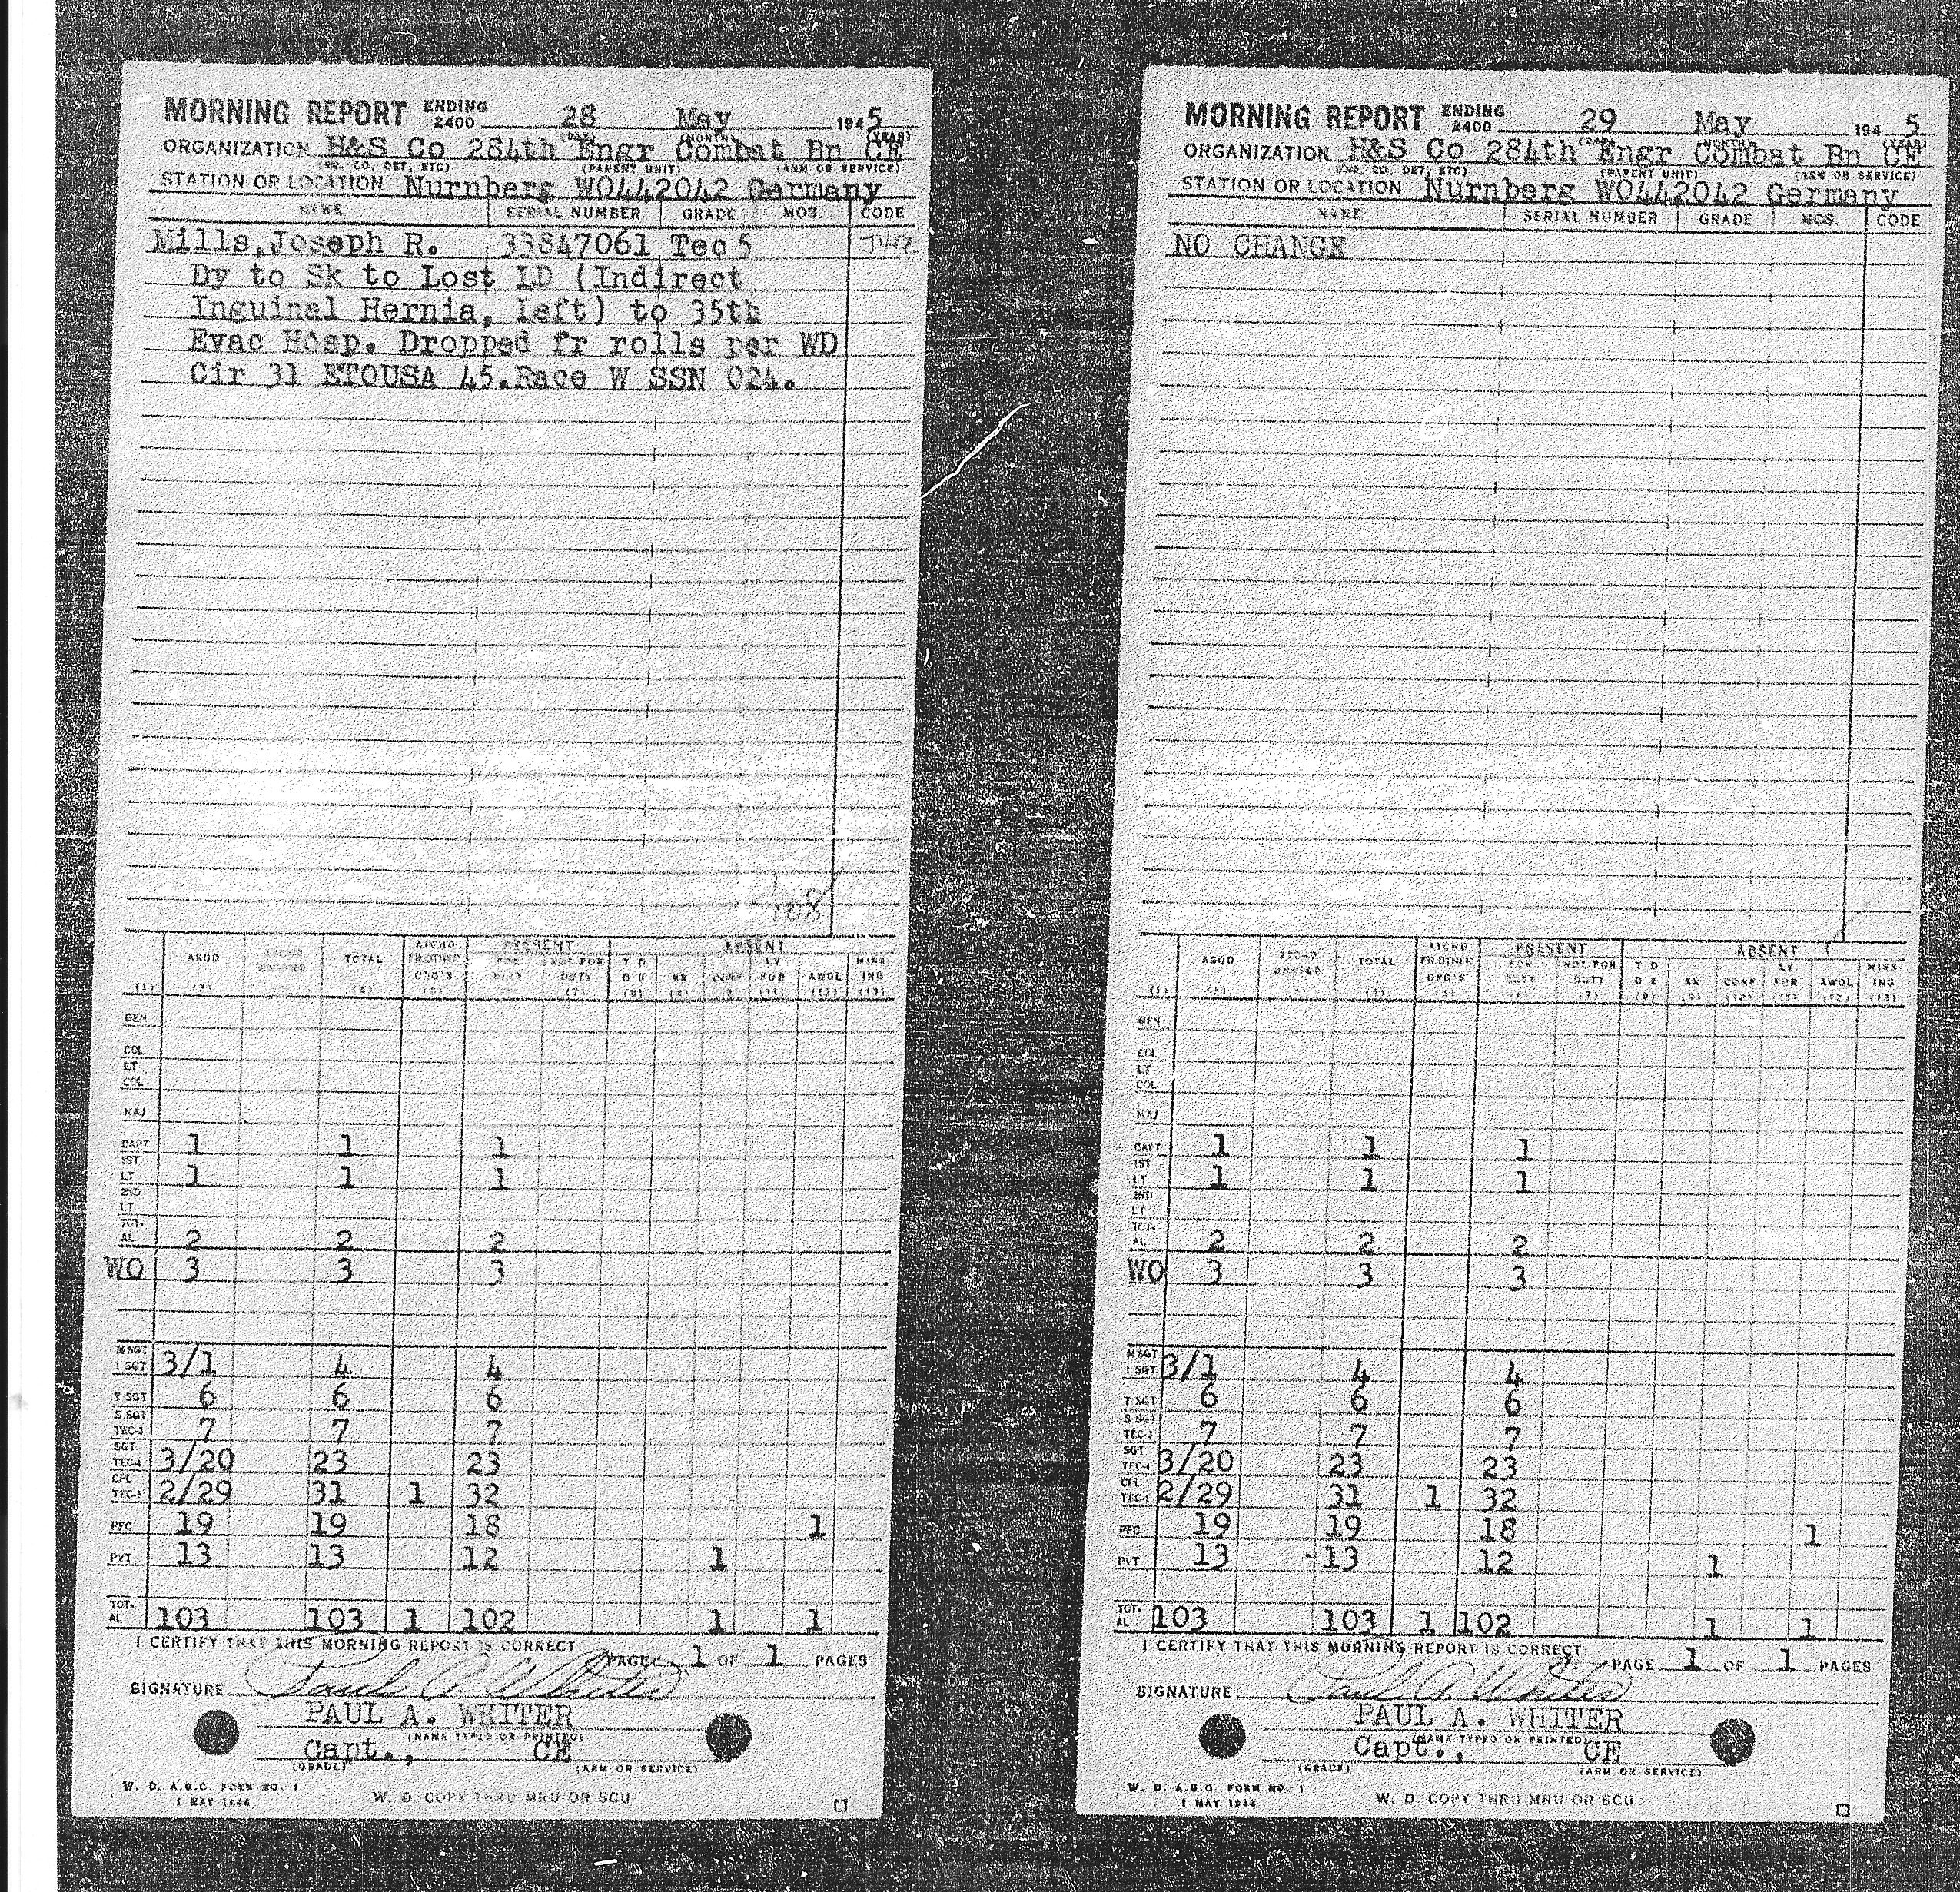 MORNING REPORT ENDING 2400 28 May 1945
(DAY) (MONTH) (YEAR)
ORGANIZATION H&S Co 284th Engr Combat Bn CE
(CO, DET, ETC) (PARENT UNIT) (ARM OR SERVICE)
STATION OR LOCATION Nurnberg WO442042 Germany
NAME SERIAL NUMBER GRADE MOS. CODE
Mills,Joseph R. 33847061 Tec 5
Dy to Sk to Lost LD (Indirect
Inguinal Hernia, left) to 35th
Evac Hosp. Dropped fr rolls per WD
Cir 31 ETOUSA 45.Race W SSN 024.
108
ATCHD PRESENT ABSENT
ASGD TOTAL FR.OTHER FOR NOT FOR T D LV MISS
ORG'S DUTY DUTY D S SK CONF FUR AWOL ING
(1) (4) (5) (7) (8) (9) (11) (12) (13)
GEN
COL
LT
COL
MAJ
CAPT 1 1 1
1ST
LT 1 1 1
2ND
LT
TOT-
AL 2 2 2
WO 3 3 3
M SGT
1 SGT 3/1 4 4
T SGT 6 6 6
S SGT
TEC-3 7 7 7
SGT
TEC-4 3/20 23 23
CPL
TEC-5 2/29 31 1 32
PFC 19 19 18 1
PVT 13 13 12 1
TOT-
AL 103 103 1 102 1 1
I CERTIFY THAT THIS MORNING REPORT IS CORRECT
PAGE 1 OF 1 PAGES
SIGNATURE Paul A. Whiter
PAUL A. WHITER
(NAME TYPED OR PRINTED)
Capt., CE
(GRADE) (ARM OR SERVICE)
W. D. A.G.O. FORM NO. 1
1 MAY 1944
W. D. COPY THRU MRU OR SCU
MORNING REPORT ENDING 2400 29 May 1945
ORGANIZATION H&S Co 284th Engr Combat Bn CE
(CO, DET, ETC) (PARENT UNIT) (ARM OR SERVICE)
STATION OR LOCATION Nurnberg WO442042 Germany
NAME SERIAL NUMBER GRADE MOS. CODE
NO CHANGE
ATCHD PRESENT ABSENT
ASGD ATCHD TOTAL FR.OTHER FOR NOT FOR T D LV MISS-
UNASGD ORG'S DUTY DUTY D S SK CONF FUR AWOL ING
(1) (5) (7) (8) (9) (10) (11) (12) (13)
GEN
COL
LT
COL
MAJ
CAPT 1 1 1
1ST
LT 1 1 1
2ND
LT
TOT-
AL 2 2 2
WO 3 3 3
M SGT
1 SGT 3/1 4 4
T SGT 6 6 6
S SGT
TEC-3 7 7 7
SGT
TEC-4 3/20 23 23
CPL
TEC-5 2/29 31 1 32
PFC 19 19 18 1
PVT 13 13 12 1
TOT-
AL 103 103 1 102 1 1
I CERTIFY THAT THIS MORNING REPORT IS CORRECT
PAGE 1 OF 1 PAGES
SIGNATURE Paul A. Whiter
PAUL A. WHITER
(NAME TYPED OR PRINTED)
Capt., CE
(GRADE) (ARM OR SERVICE)
W. D. A.G.O. FORM NO. 1
1 MAY 1944
W. D. COPY THRU MRU OR SCU